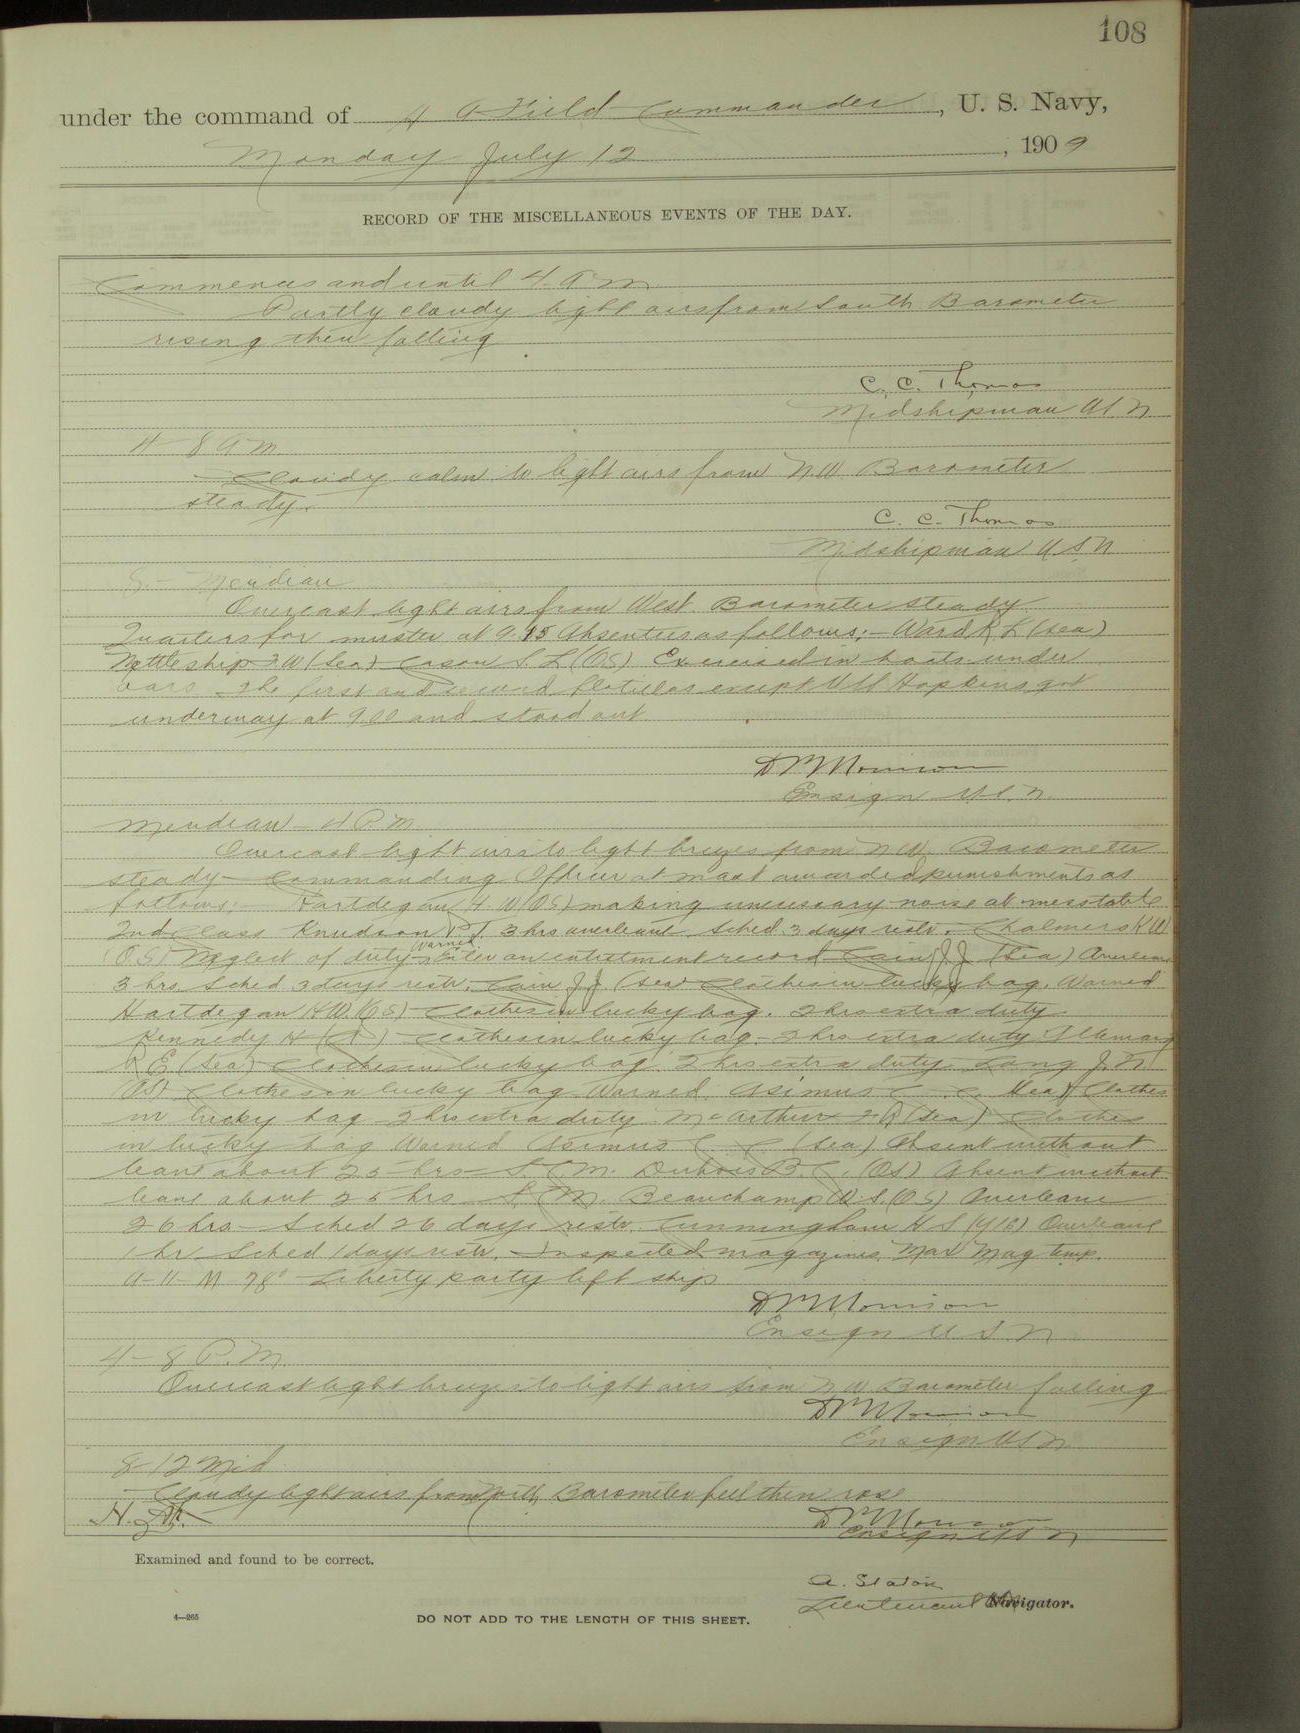 108
under the command of H A Field Commander, U. S. Navy,
Monday July 12, 1909
RECORD OF THE MISCELLANEOUS EVENTS OF THE DAY.
Commences and until 4 A M
Partly cloudy light airs from South Barometer
rising then falling
C. C. Thomas
Midshipman U S N
4 - 8 A M
Cloudy calm to light airs from N. W. Barometer
steady.
C. C. Thomas
Midshipman U. S. N
8 - Meridian
Overcast light airs from West. Barometer steady
Quarters for muster at 9.15 Absentees as follows; - Ward R L (Sea)
Nettleship F W (Sea) Cason S. L (OS) Exercised in boats under
oars The first and second flotillas except USS Hopkins got
underway at 9 00 and stood out
D M Morrison
Ensign U. S. N.
Meridian - 4 P M
Overcast light airs to light breezes from N W. Barometer
steady Commanding Officer at mast awarded punishments as
follows: Hartdegan H. W (OS) making unnecessary noise at mess table
2nd Class Knudson P. T. 3 hrs overleave. Sched 3 days restr. Chalmers K W
(O.S) Neglect of duty Warned Enter on enlistment record Cain J J (Sea) Overleave
3 hrs Sched 3 days restr. Cain J J. (Sea) Clothes in lucky bag. Warned
Hartdegan H W. (OS) Clothes in lucky bag. 2 hrs extra duty
Kennedy H Clothes in lucky bag - 2 hrs extra duty
R E (Sea) Clothes in lucky bag 2 hrs extra duty Lang J. N
(OS) Clothes in lucky bag Warned. Asimus C. C. (Sea) Clothes
in lucky bag 2 hrs extra duty McArthur F R (Sea) Clothes
in lucky bag Warned Asimus C C (Sea) Absent without
leave about 25 hrs - S. C. M. Dubois B. C. (OS) Absent without
leave about 25 hrs S. C. M. Beauchamp W. S. (OS) Overleave
26 hrs - Sched 26 days restr. Cunningham H S Overleave
1 hr Sched 1 days restr. Inspected magazines. Max Mag temp.
A-11-M 78° Liberty party left ship
D M Morrison
Ensign U S N
4 - 8 P. M.
Overcast light breezes to light airs from N W Barometer falling
D M Morrison
Ensign U S N
8 - 12 Mid
Cloudy light airs from North Barometer fell then rose
D M Morrison
Ensign U S N
Examined and found to be correct.
A. Staton
Lieutenant USN Navigator.
4—265
DO NOT ADD TO THE LENGTH OF THIS SHEET.